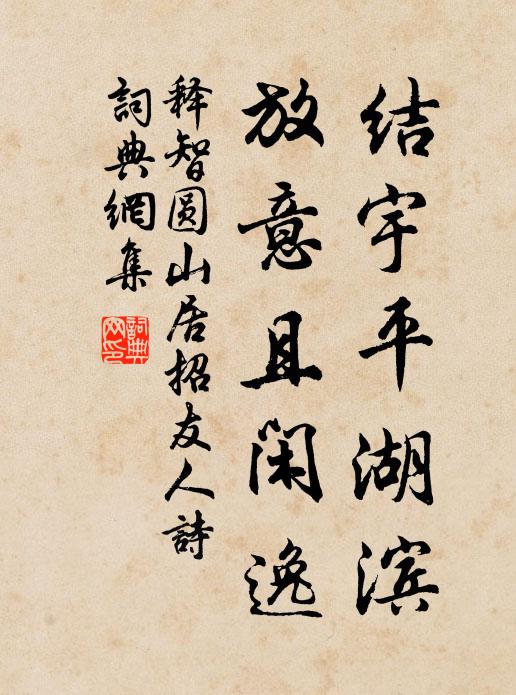 结宇平湖滨
放意且闲逸
释智圆山居招友人詩
詞典網集
詞典
网印